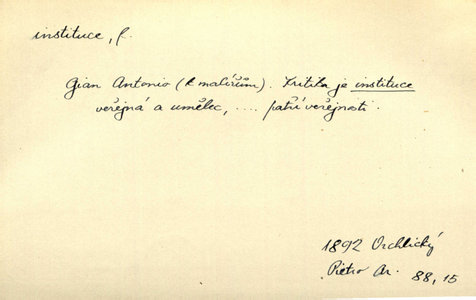 instituce, f.
Gian Antonio (k malířům). Kritika je instituce
veřejná a umělec, .... patří veřejnosti.
1892 Vrchlický
Pietro Ar. 88, 15